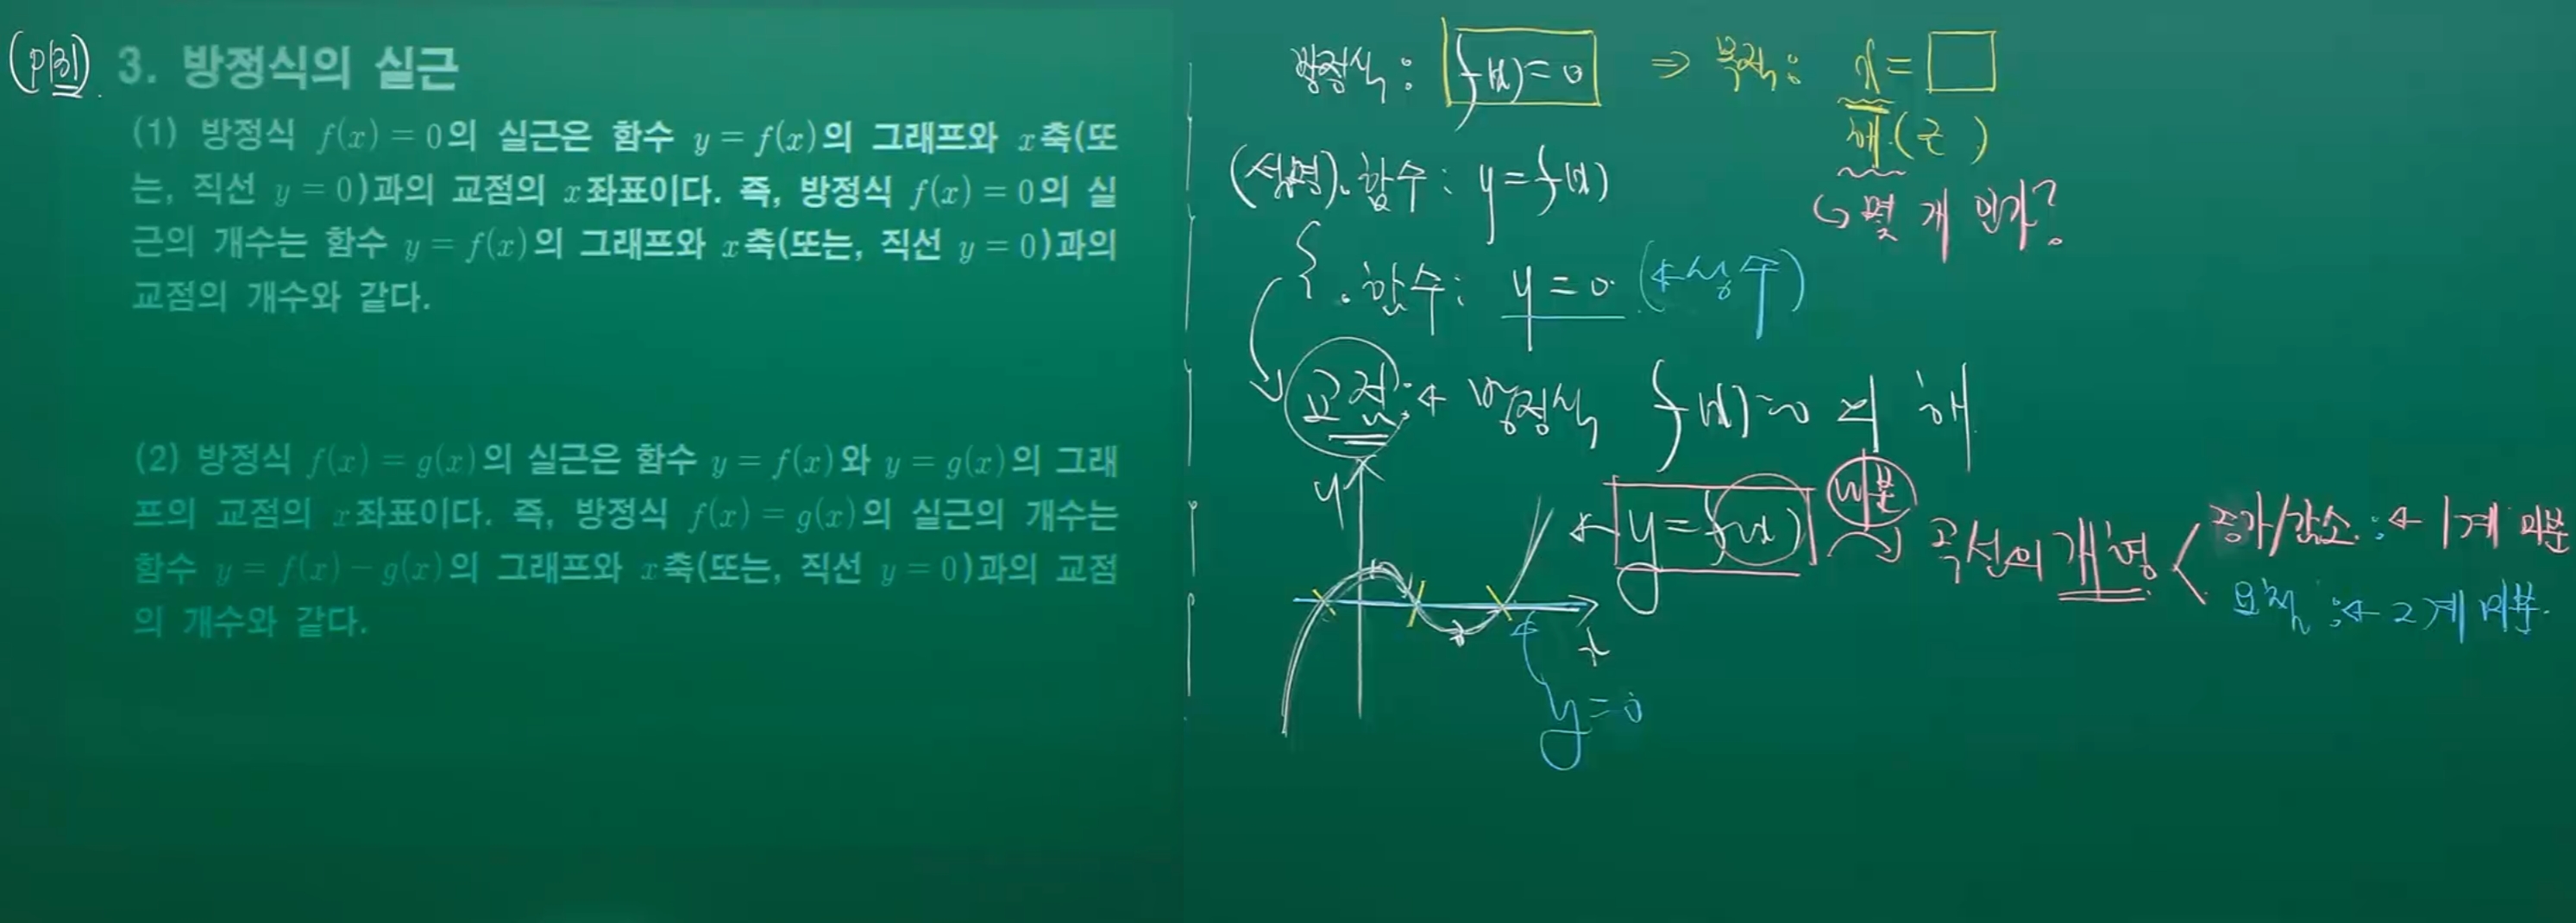 (p131). 3. 방정식의 실근
(1) 방정식 f(x) = 0의 실근은 함수 y = f(x)의 그래프와 x축(또
는, 직선 y = 0)과의 교점의 x좌표이다. 즉, 방정식 f(x) = 0의 실
근의 개수는 함수 y = f(x)의 그래프와 x축(또는, 직선 y = 0)과의
교점의 개수와 같다.
(2) 방정식 f(x) = g(x)의 실근은 함수 y = f(x)와 y = g(x)의 그래
프의 교점의 x좌표이다. 즉, 방정식 f(x) = g(x)의 실근의 개수는
함수 y = f(x) − g(x)의 그래프와 x축(또는, 직선 y = 0)과의 교점
의 개수와 같다.
방정식 : f(x) = 0 ⇒ 목적 : x = □
해 (근)
↪ 몇 개 인가?
(설명). 함수 : y = f(x)
. 함수 : y = 0 (← 상수)
교점 : ← 방정식 f(x) = 0 의 해
y
← y = f(x) 미분 곡선의 개형
증가/감소 : ← 1계 미분
요철 : ← 2계 미분.
x
y = 0